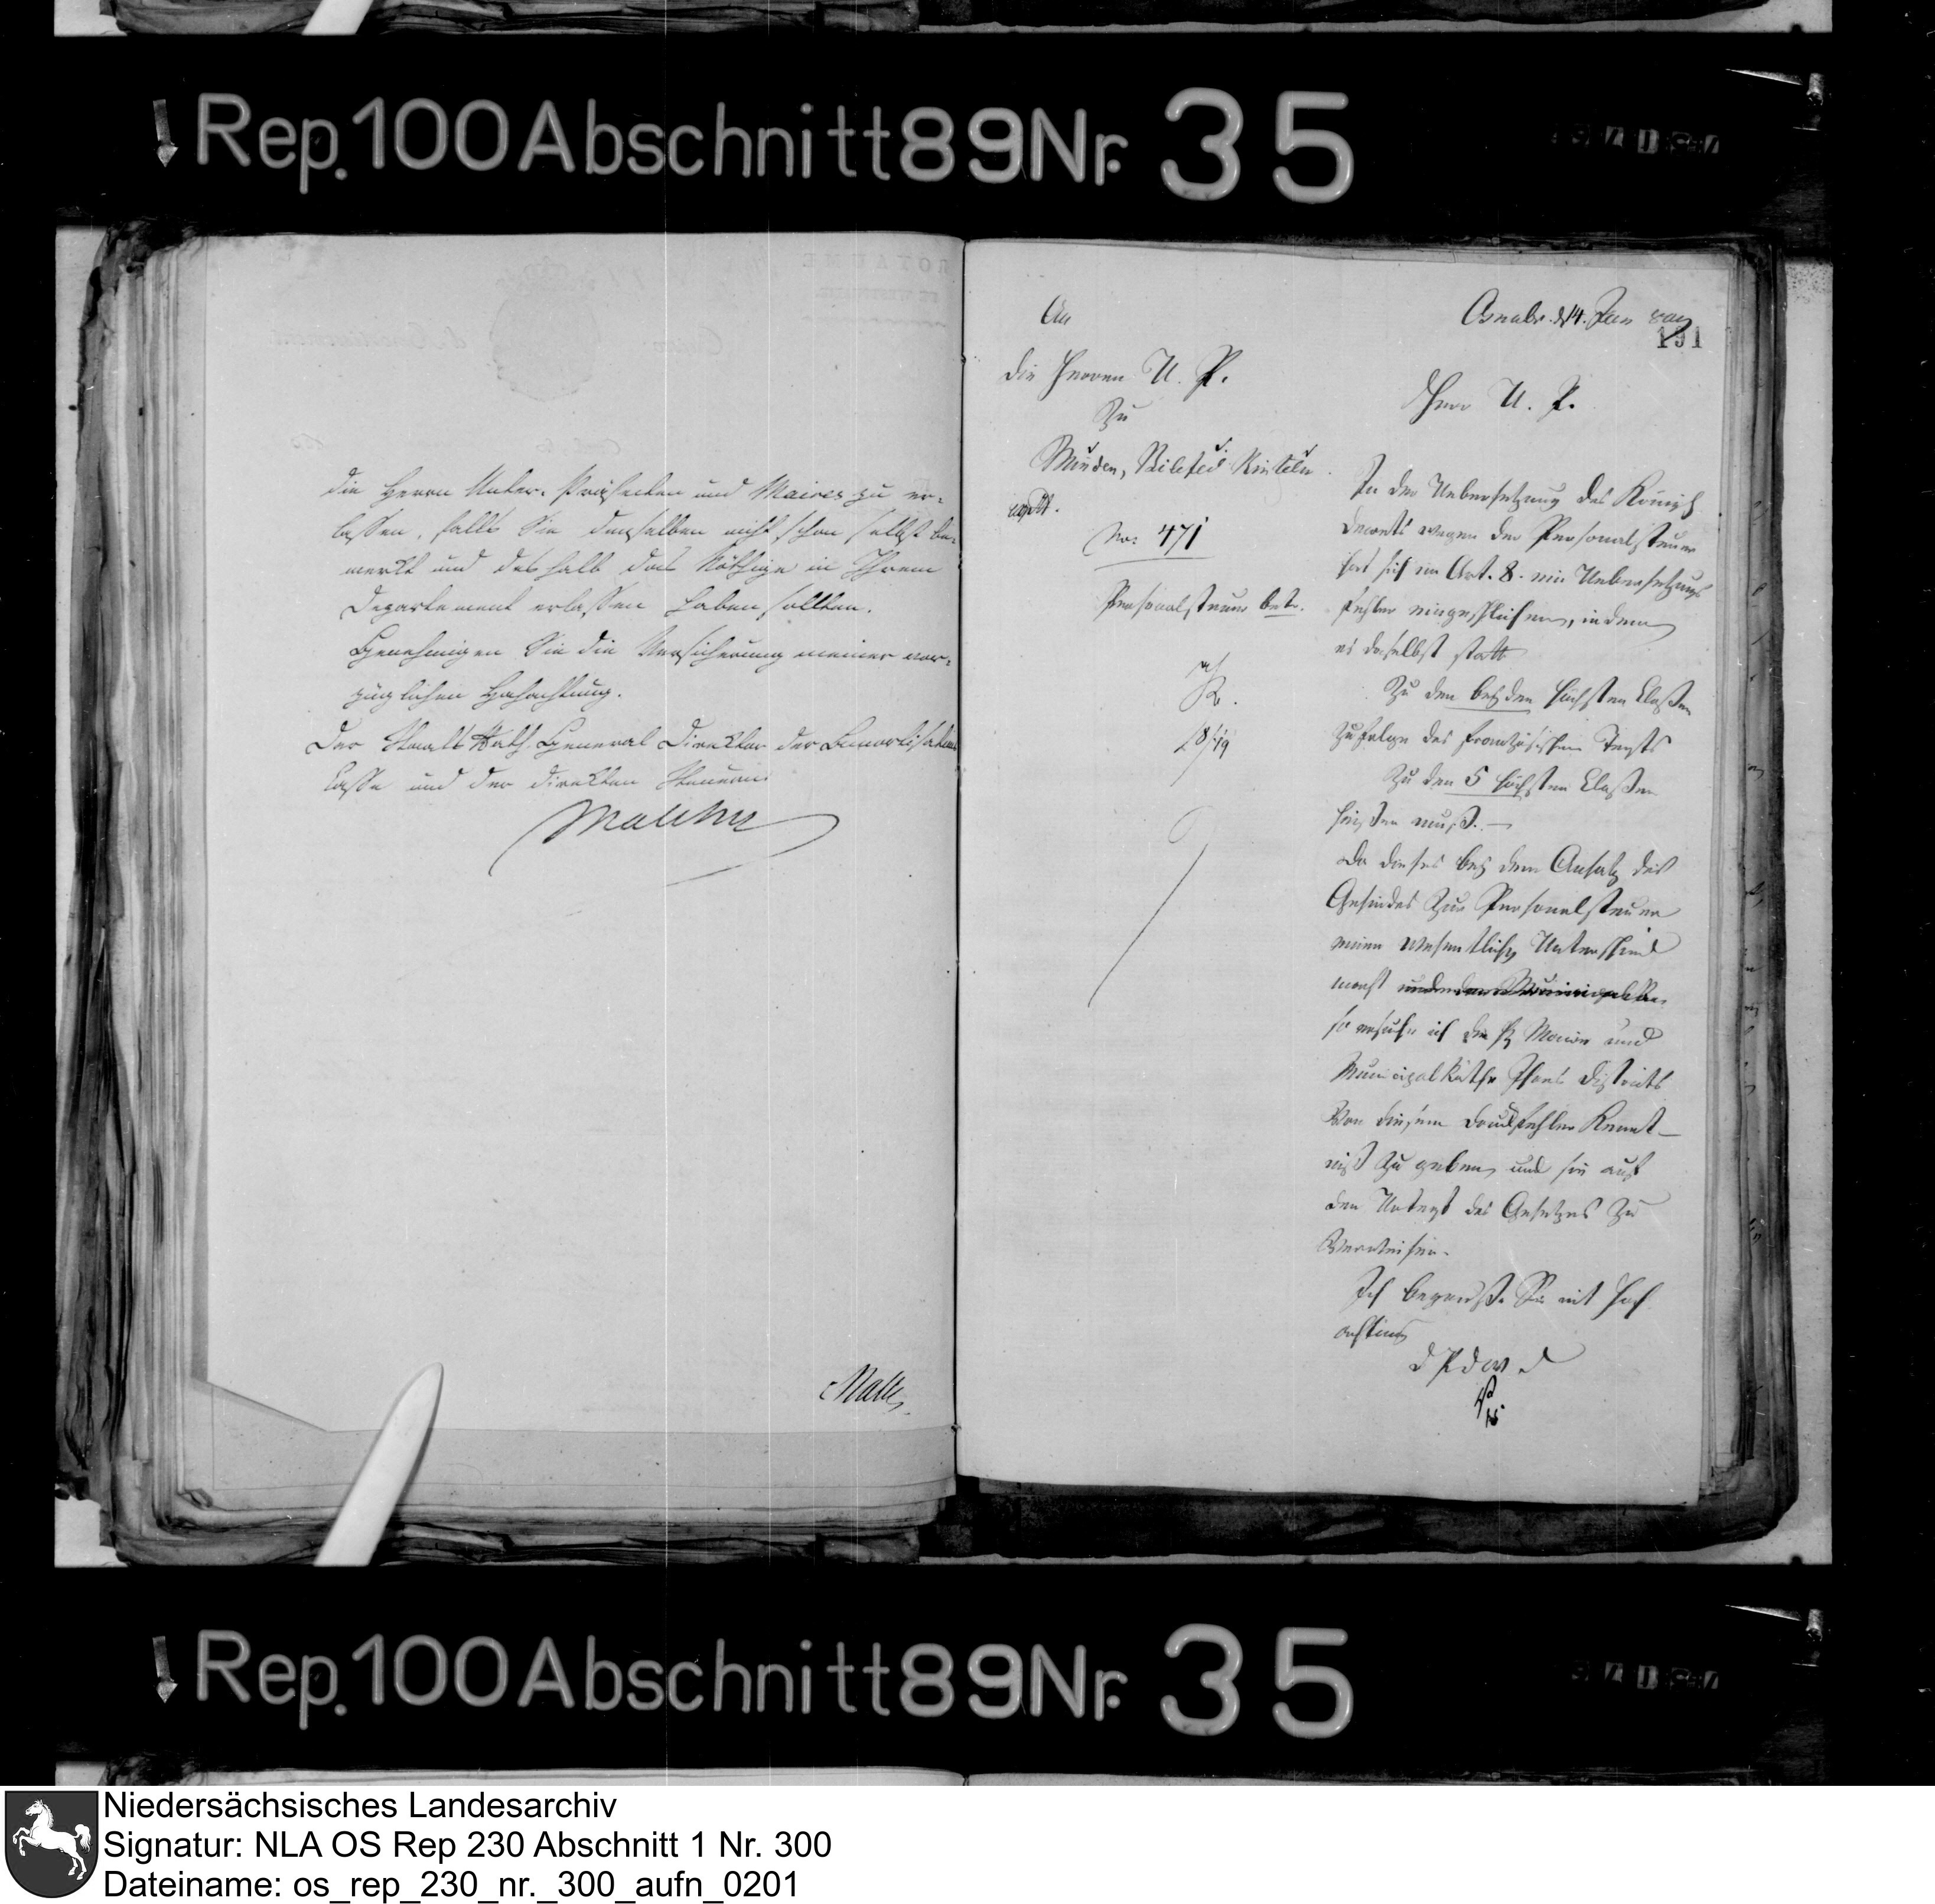 Rep. 100 Abschnitt 89 Nr. 35
die Herrn Unter-Präfecten und Maires zu er-
lassen, falls Sie denselben nicht schon selbst be-
merkt und deshalb das Nöthige in Ihrem
Departement erlassen haben sollten.
Genehmigen Sie die Versicherung meiner vor-
züglichen Hochachtung.
Der Staats Rath, General Direktor der Amortisations
Casse und der direkten Steuern
Malchus
An
die Herren U. P.
zu
Minden, Bielefed Rinteln
No: 471
Personalsteuer betr.
191
Osnabr. d 14. Jan
Herr U. P.
In der Uebersetzung des Königl
Decrets wegen der Personalsteuer
hat sich im Art. 8. ein Uebersetzungs
fehler eingeschlichen, indem
es daselbst statt
zu den beyden höchsten Classen
zufolge des französischen Texts
zu den 5 höchsten Classen
heißen muß. —
Da dieses bey dem Ansatz des
Gesindes zur Personalsteuer
einen wesentlichen Unterschied
macht
so ersuche ich die H Maires und
Municipal Räthe Ihres Districts
von diesem Druckfehler Kennt-
niß zu geben, und sie auf
den Urtext des Gesetzes zu
verweisen.
Ich begrüße Sie mit Hoch
achtung
Rep. 100 Abschnitt 89 Nr. 35
Niedersächsisches Landesarchiv
Signatur: NLA OS Rep 230 Abschnitt 1 Nr. 300
Dateiname: os_rep_230_nr._300_aufn_0201